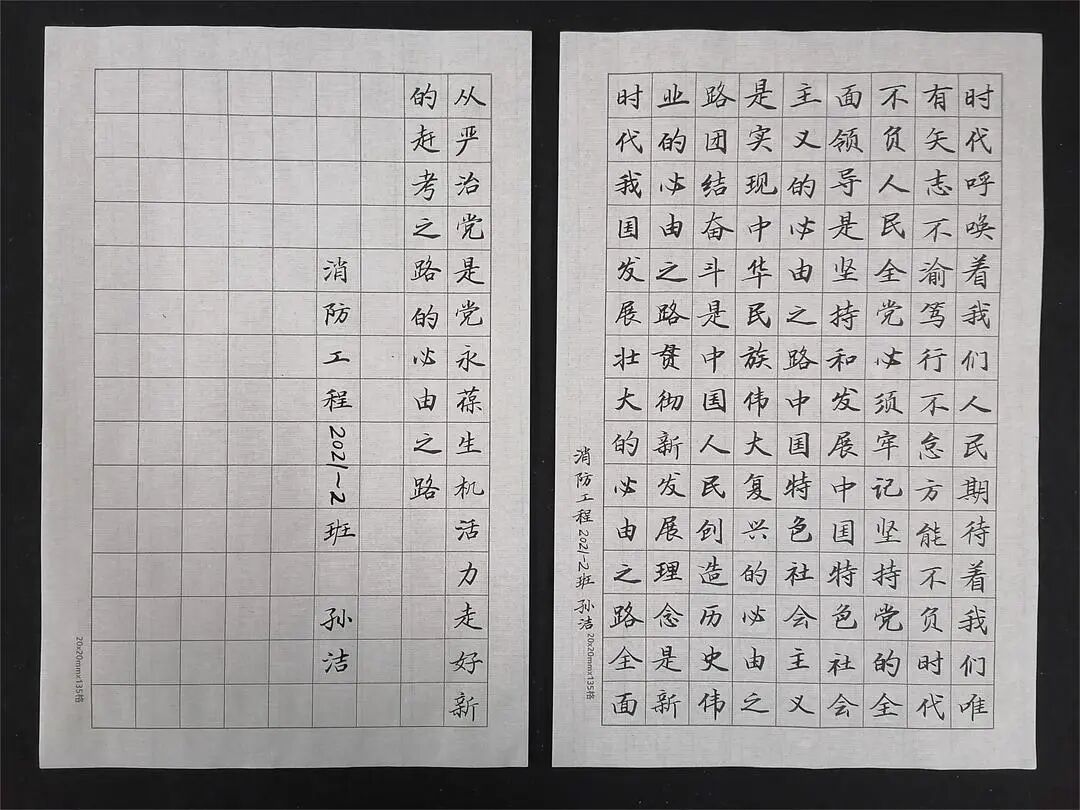 时代呼唤着我们人民期待着我们唯
有矢志不渝笃行不怠方能不负时代
不负人民全党必须牢记坚持党的全
面领导是坚持和发展中国特色社会
主义的必由之路中国特色社会主义
是实现中华民族伟大复兴的必由之
路团结奋斗是中国人民创造历史伟
业的必由之路贯彻新发展理念是新
时代我国发展壮大的必由之路全面
消防工程2021-2班 孙洁
20x20mmx135格
从严治党是党永葆生机活力走好新
的赶考之路的必由之路
消防工程2021-2班 孙洁
20x20mmx135格